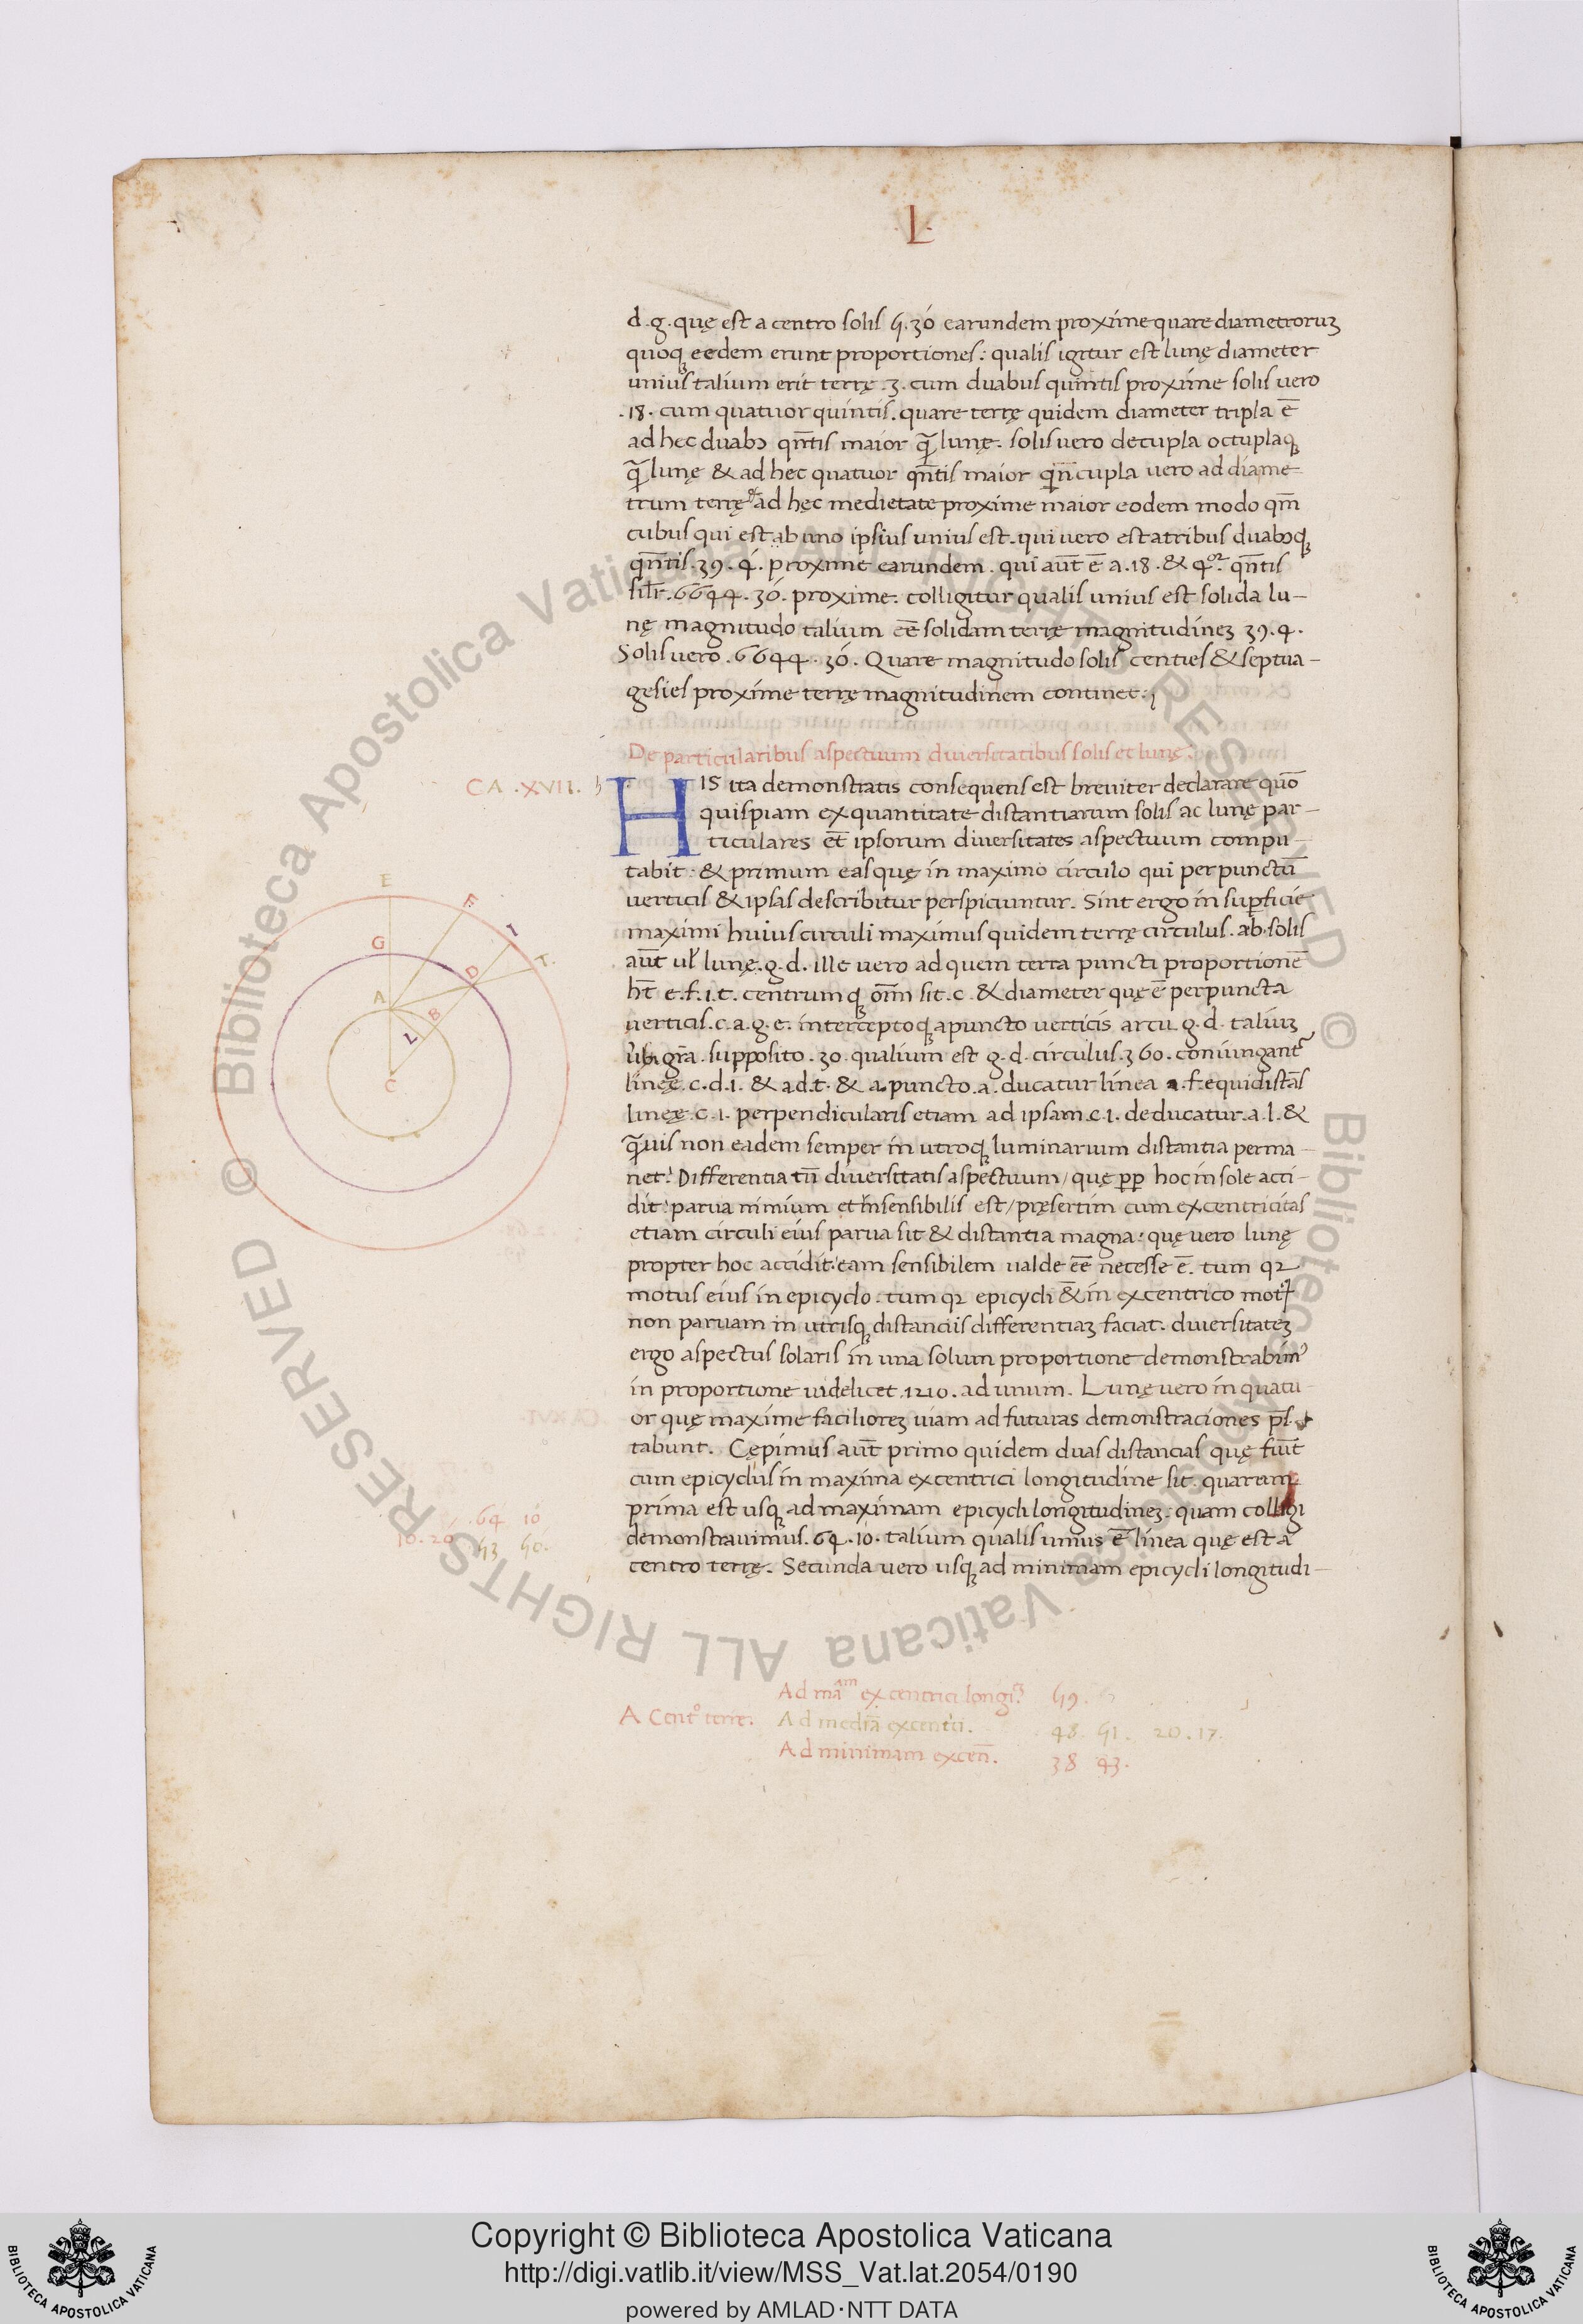 L
d.g. quę est a centro solis 5.30 earundem proxime quare diametroruꝫ
quoqꝫ eedem erunt proportiones: qualis igitur est lunę diameter
unius talium erit terrę .3. cum duabus quintis proxime solis vero
.18. cum quatuor quintis. quare terrę quidem diameter tripla ē
ad hec duabꝯ qn̄tis maior q̄ȝ lunę. solis vero decupla octuplaqꝫ
lunę & ad hec quatuor qn̄tis maior qn̄cupla vero ad diame
trum terrę & ad hęc medietate proxime maior eodem modo qm̄
cubus qui est ab uno ipsius unius est. qui vero est a tribus duabꝯqꝫ
qn̄tis .39.4. proxime earundem. qui aut̄ ē a .18. & 4or. qn̄tis
silr̄ .6644.30. proxime. colligitur qualis unius est solida lu–
nę magnitudo talium eē solidam terrę magnitudineꝫ 39.4.
Solis vero .6644.30. Quare magnitudo solis centies & septua–
gesies proxime terrę magnitudinem continet:
De particularibus aspectuum diversitatibus solis et lunę.
CA .XVII.
HIS ita demonstratis consequens est breviter declarare quō
quispiam ex quantitate distantiarum solis ac lunę par–
ticulares et̄ ipsorum diversitates aspectuum compu–
tabit: & primum eas quę in maximo circulo qui per punctū
verticis & ipsas describitur perspicuntur. Sint ergo in sup̱ficie
maximi huius circuli maximus quidem terrę circulus .ab. solis
aut̄ ul̄ lunę .g.d. ille vero ad quem terra puncti proportionē
ht̄ e.f.i.t. centrumqꝫ om̄ sit .c. & diameter quę ē per puncta
verticis .c.a.g.e. interceptoqꝫ a puncto verticis arcu .g.d. taliuꝫ
gr̄a. supposito .30. qualium est g.d. circulus .360. coniungant̄
linęę .c.d.i. & a.d.t. & a puncto .a. ducatur linea a.f. equidistās
linęę .c.i. perpendicularis etiam ad ipsam .c.i. deducatur .a.l. &
q̄ȝvis non eadem semper in utroqꝫ luminarium distantia perma–
net: Differentia tn̄ diversitatis aspectuum / quę pp̱ hoc in sole acci–
dit: parva nimium et insensibilis est / pręsertim cum excentricitas
etiam circuli eius parva sit & distantia magna: quę vero lunę
propter hoc accidit: eam sensibilem valde eē necesse ē. tum qꝛ
motus eius in epicyclo. tum qꝛ epicycli & in excentrico mot
non parvam in utrisqꝫ distanciis differentiaꝫ faciat. diversitateꝫ
ergo aspectus solaris in una solum proportione demonstrabimꝰ
in proportione videlicet .1210. ad unum. Lunę vero in quatu
or quę maxime facilioreꝫ viam ad futuras demonstraciones ps̄
tabunt. Cępimus aut̄ primo quidem duas distancias quę fiūt
cum epicyclus in maxima excentrici longitudine sit. quarum
prima est usqꝫ ad maximam epicycli longitudineꝫ: quam colligi
demonstravimus .64.10. talium qualis unius ē linea quę est a
centro terrę. Secunda vero usqꝫ ad minimam epicycli longitudi–
E
F
I
T.
G
D
A
B
L
C
.64 10
10.20
53 50.
A Centº terre.
Ad mām excentrici longi. 59.
Ad mediā excentri. 48. 51. 20.17.
Ad minimam excen̄. 38 43.
© Biblioteca Apostolica Vaticana ALL RIGHTS RESERVED © Biblioteca Apostolica Vaticana ALL RIGHTS RESERVED
Copyright © Biblioteca Apostolica Vaticana
http://digi.vatlib.it/view/MSS_Vat.lat.2054/0190
powered by AMLAD·NTT DATA
BIBLIOTECA APOSTOLICA VATICANA
BIBLIOTECA APOSTOLICA VATICANA